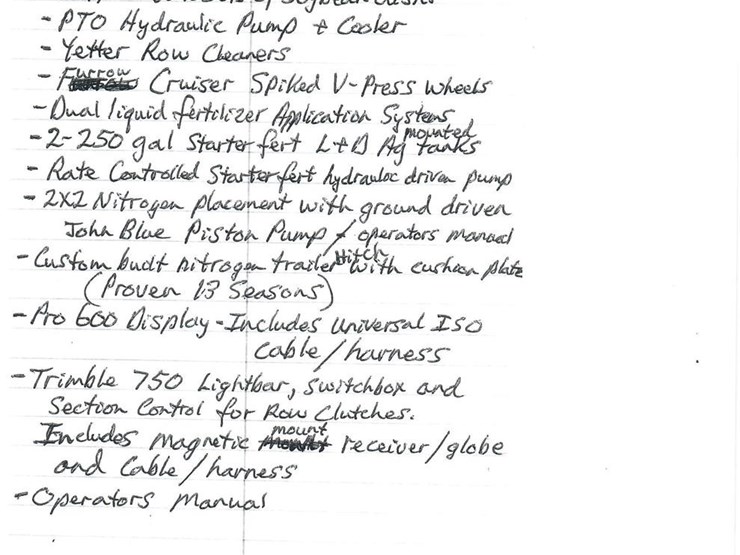 - PTO Hydraulic Pump + Cooler
- Yetter Row Cleaners
- Furrow Cruiser Spiked V-Press Wheels
- Dual liquid fertilizer Application Systems
- 2-250 gal Starter fert L+D Ag mounted tanks
- Rate Controlled Starter fert hydrauloc driven pump
- 2X2 Nitrogen placement with ground driven
John Blue Piston Pump / operators manual
- Custom built nitrogen trailer Hitch with cushion plate
(Proven 13 Seasons)
- Pro 600 Display - Includes universal ISO
Cable/harness
- Trimble 750 Lightbar, switchbox and
Section Control for Row Clutches.
Includes Magnetic mount receiver/globe
and Cable/harness
- Operators Manual